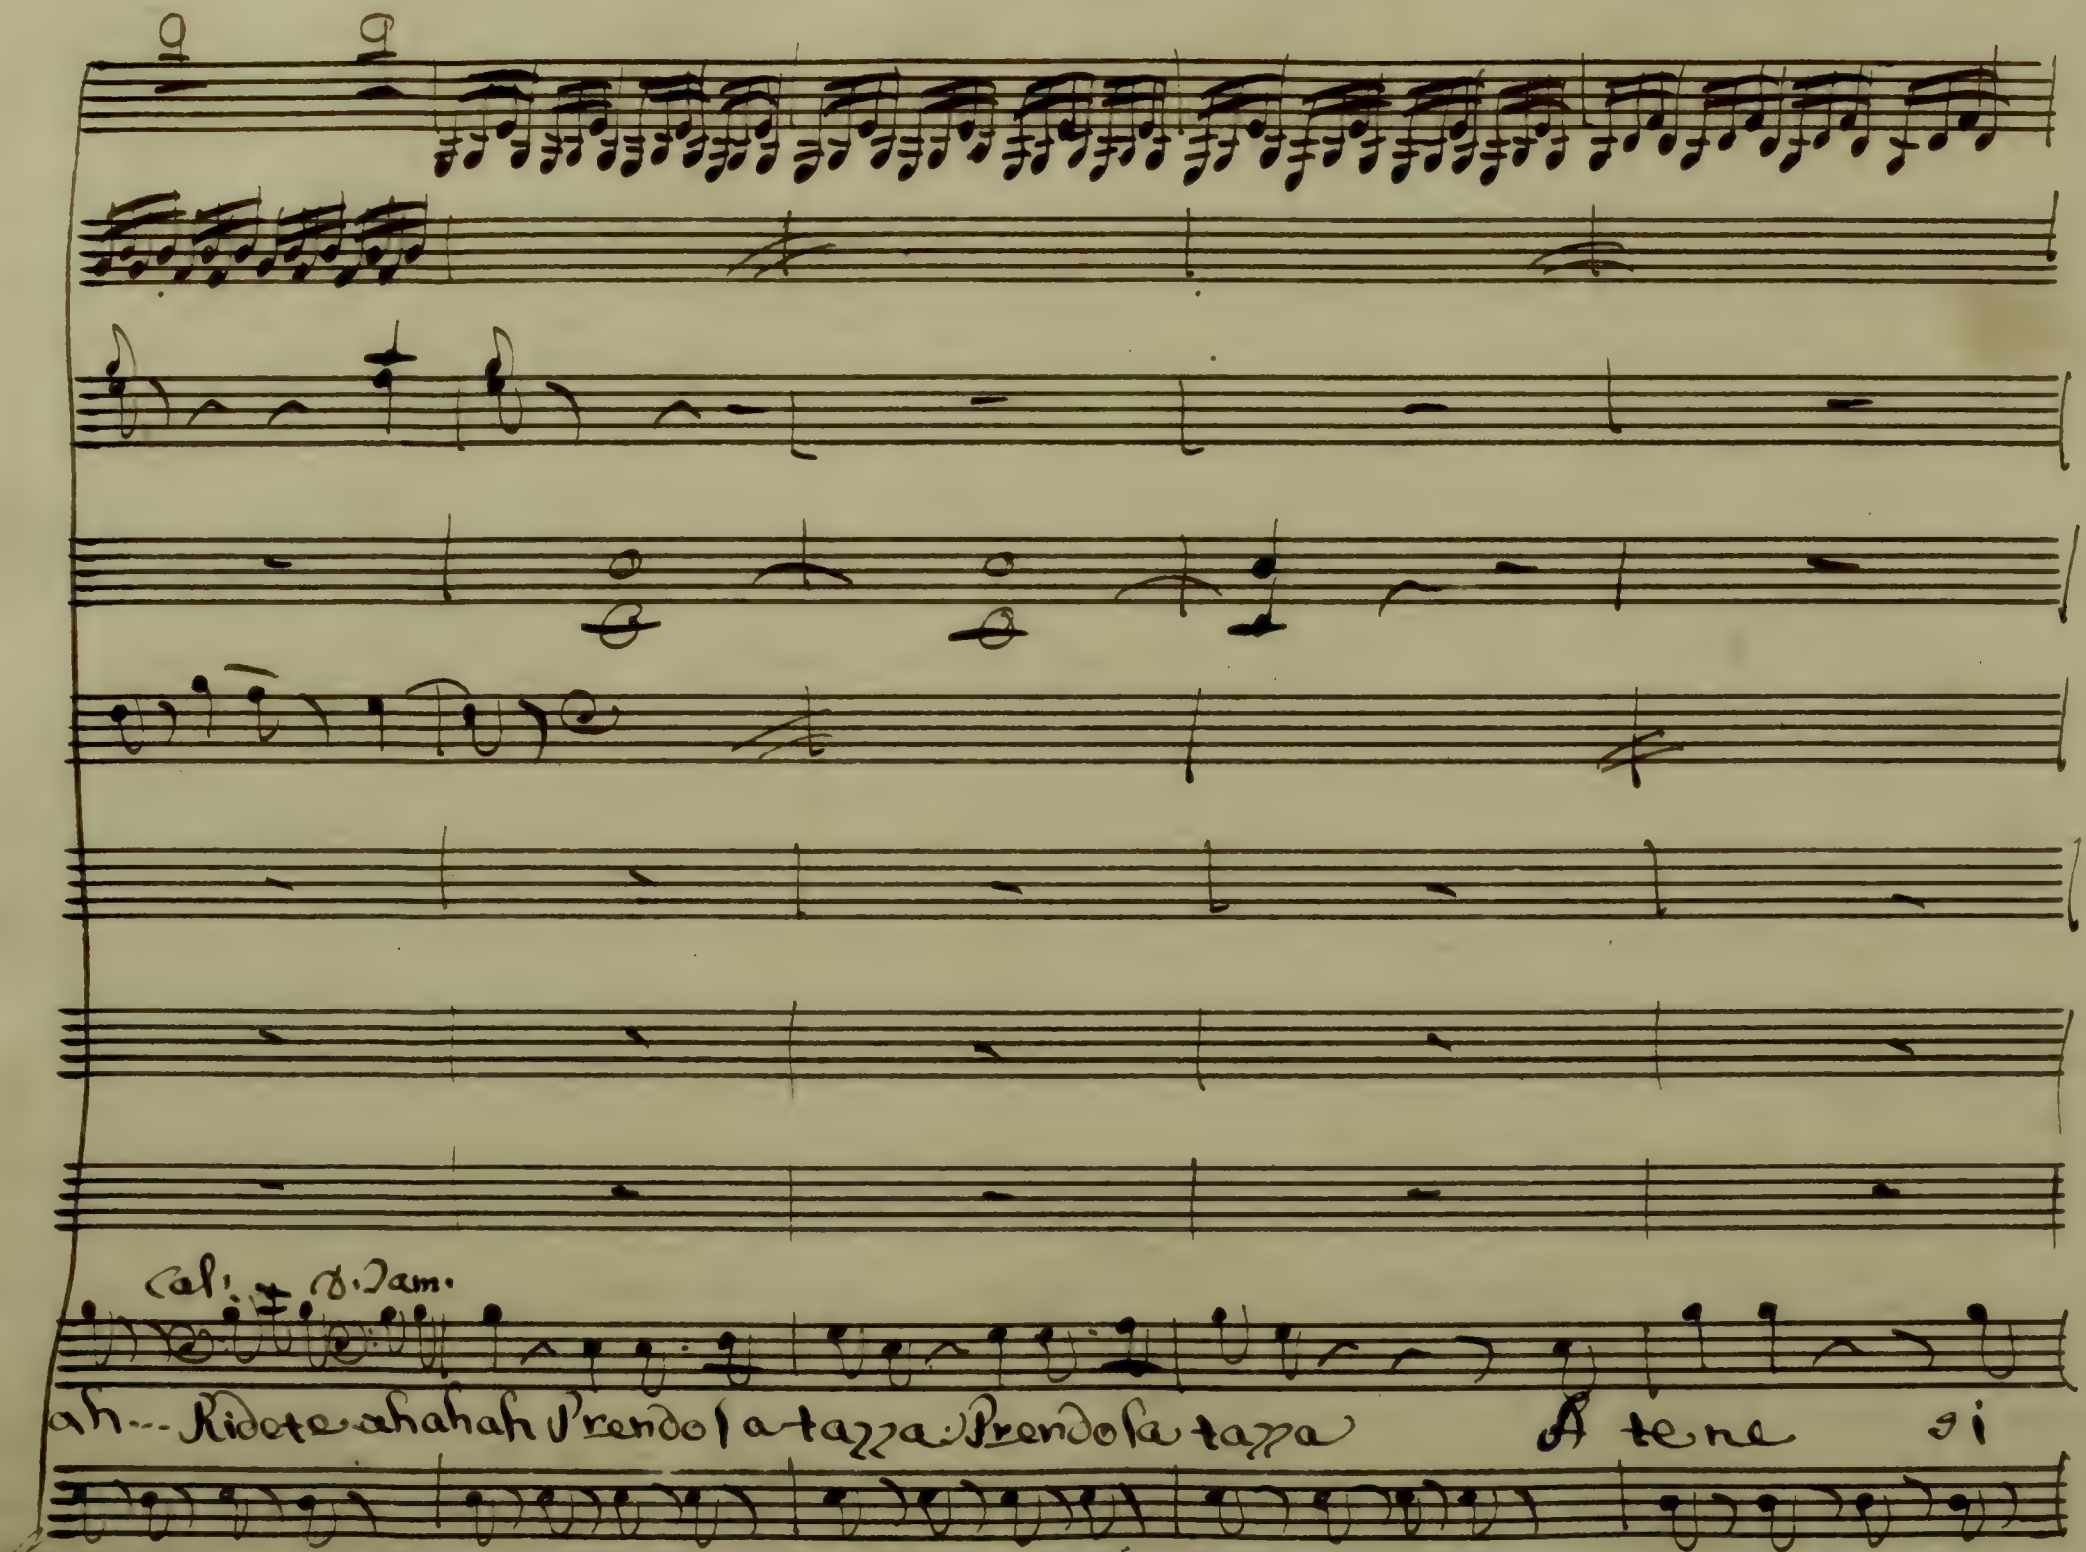 Cal:
ah... Ridete ahahah Prendo la tazza: Prendo la tazza A te ne si